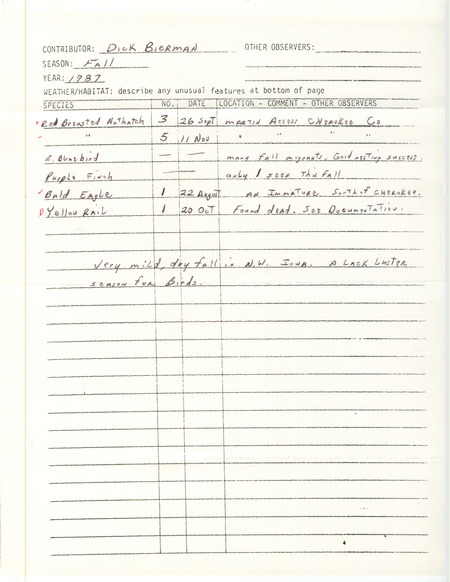 CONTRIBUTOR: Dick Bierman OTHER OBSERVERS:
SEASON: Fall
YEAR: 1987
WEATHER/HABITAT: describe any unusual features at bottom of page
SPECIES NO. DATE LOCATION - COMMENT - OTHER OBSERVERS
Red Breasted Nuthatch 3 26 Sept Martin Access Cherokee Co
" 5 11 Nov " " "
E. Bluebird — — many fall migrants, Good nesting success.
Purple Finch — — only 1 seen this fall.
Bald Eagle 1 22 August An Immature. South of Cherokee.
D Yellow Rail 1 20 Oct Found dead. See Documentation.
Very mild, dry fall in N.W. Iowa. A Lack Luster
season for Birds.